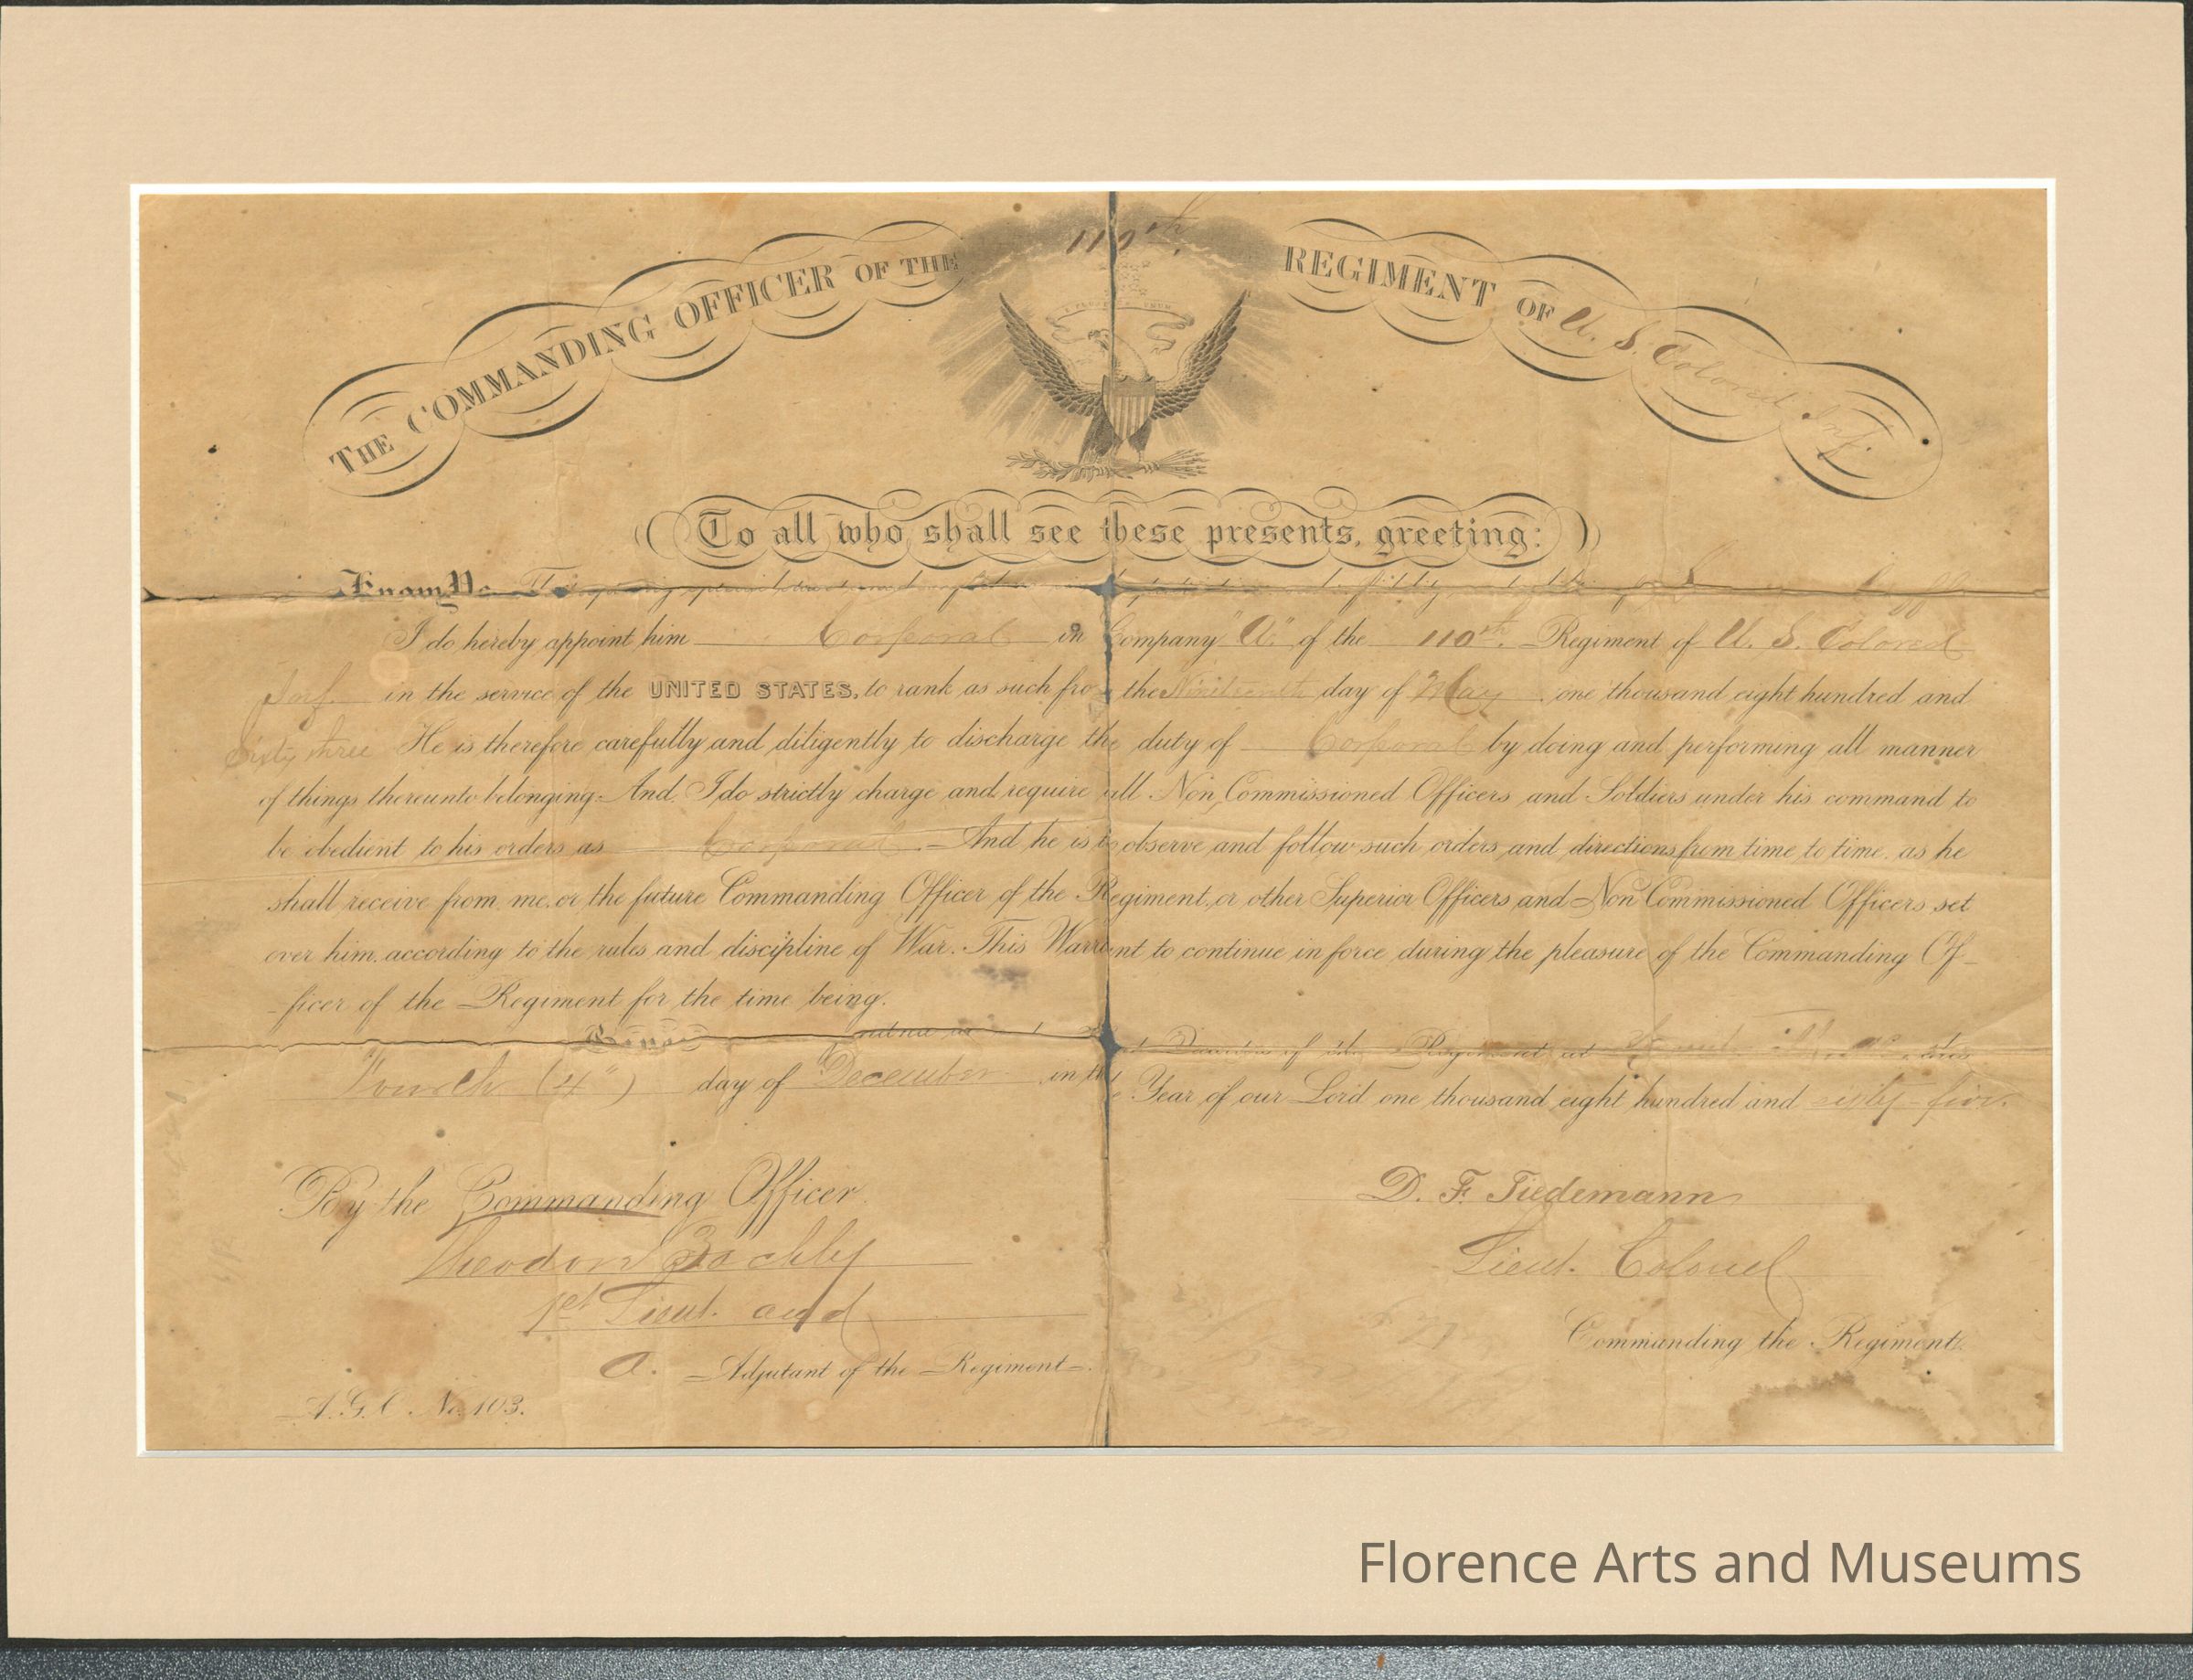 THE COMMANDING OFFICER OF THE 110th REGIMENT OF U. S. Colored Inf.
To all who shall see these presents, greeting:
Know Ye
I do hereby appoint him Corporal in Company "A." of the 110th. Regiment of U. S. Colored
Inf. in the service of the UNITED STATES, to rank as such fro the Nineteenth day of May one thousand eight hundred and
Sixty three He is therefore carefully and diligently to discharge the duty of Corporal by doing and performing all manner
of things thereunto belonging. And I do strictly charge and require all Non Commissioned Officers and Soldiers under his command to
be obedient to his orders as Corporal. And he is to observe and follow such orders and directions from time to time, as he
shall receive from me, or the future Commanding Officer of the Regiment, or other Superior Officers and Non Commissioned Officers set
over him, according to the rules and discipline of War. This Warrant to continue in force during the pleasure of the Commanding Of-
-ficer of the Regiment for the time being.
of the Regiment at this
Fourth (4") day of December in the Year of our Lord one thousand eight hundred and sixty-five.
By the Commanding Officer.
Theodore
1st Lieut. and
a. Adjutant of the Regiment.
D. F. Tiedemann
Lieut. Colonel
Commanding the Regiment.
A.G.O. No. 103.
Florence Arts and Museums